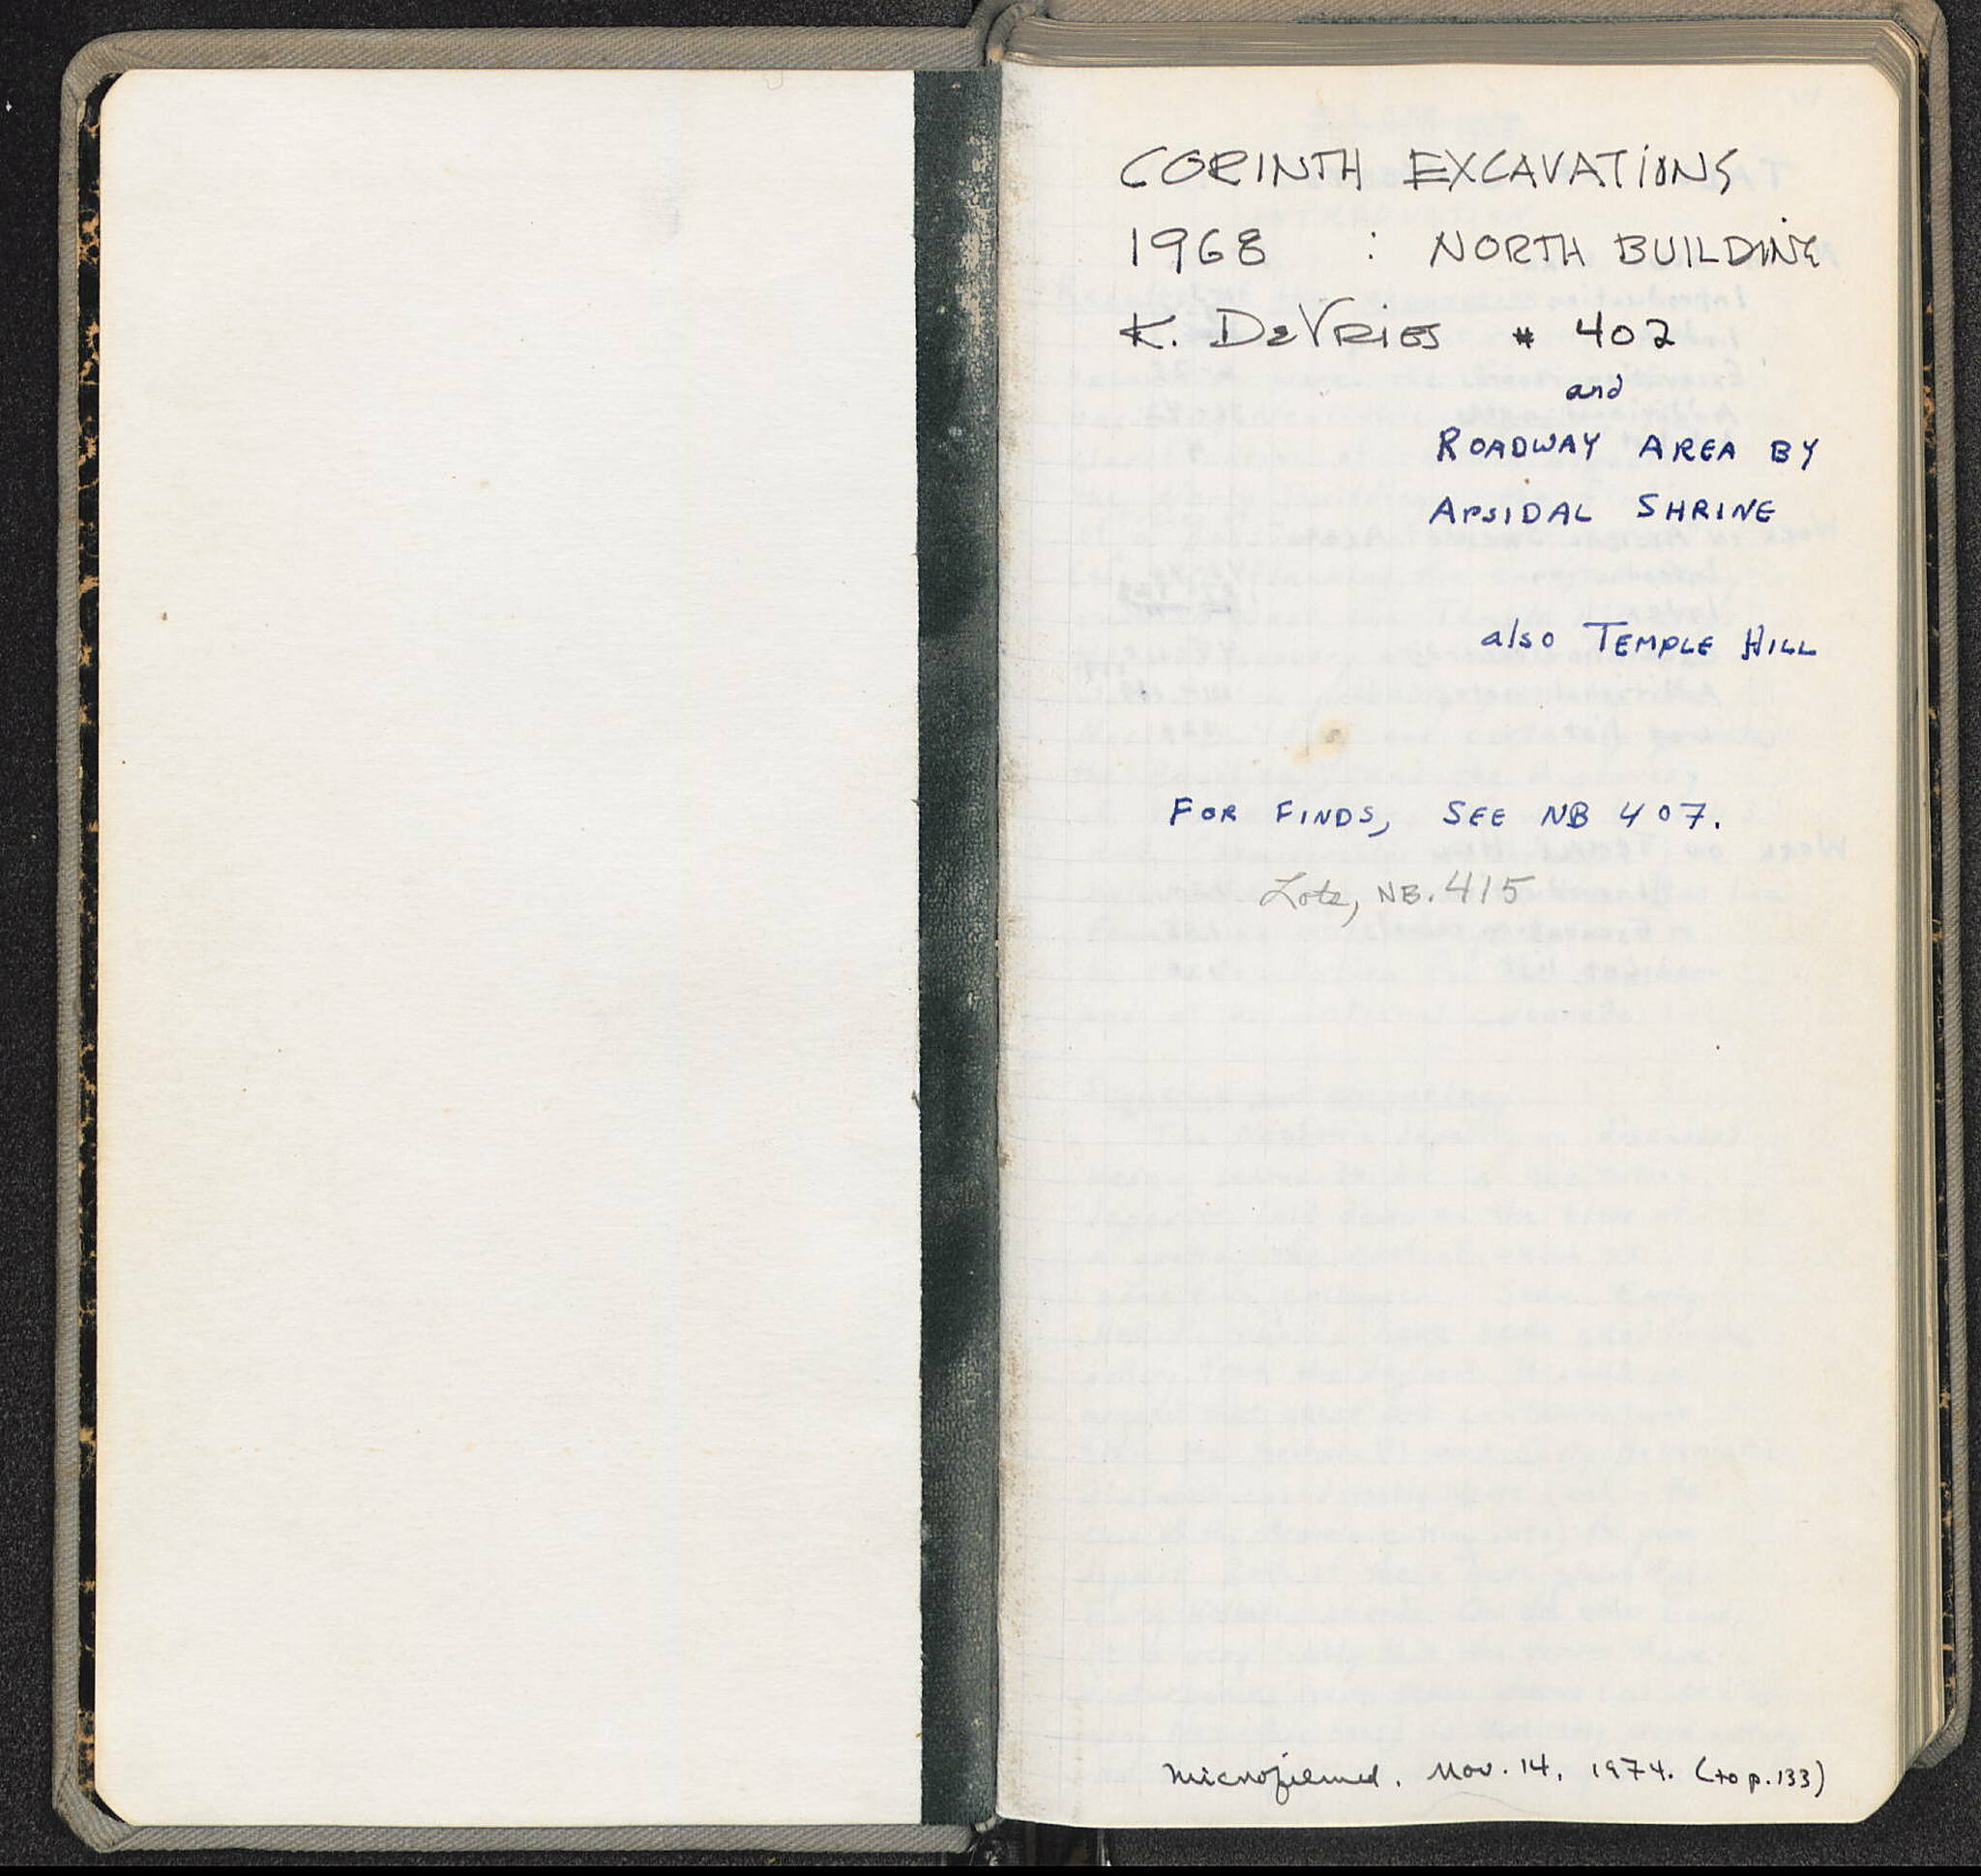 CORINTH EXCAVATIONS
1968 : NORTH BUILDING
K. DeVRIES # 402
and
ROADWAY AREA BY
APSIDAL SHRINE
also TEMPLE HILL
FOR FINDS, SEE NB 407.
Lots, NB. 415
Microfilmed. Nov. 14, 1974. (to p. 133)